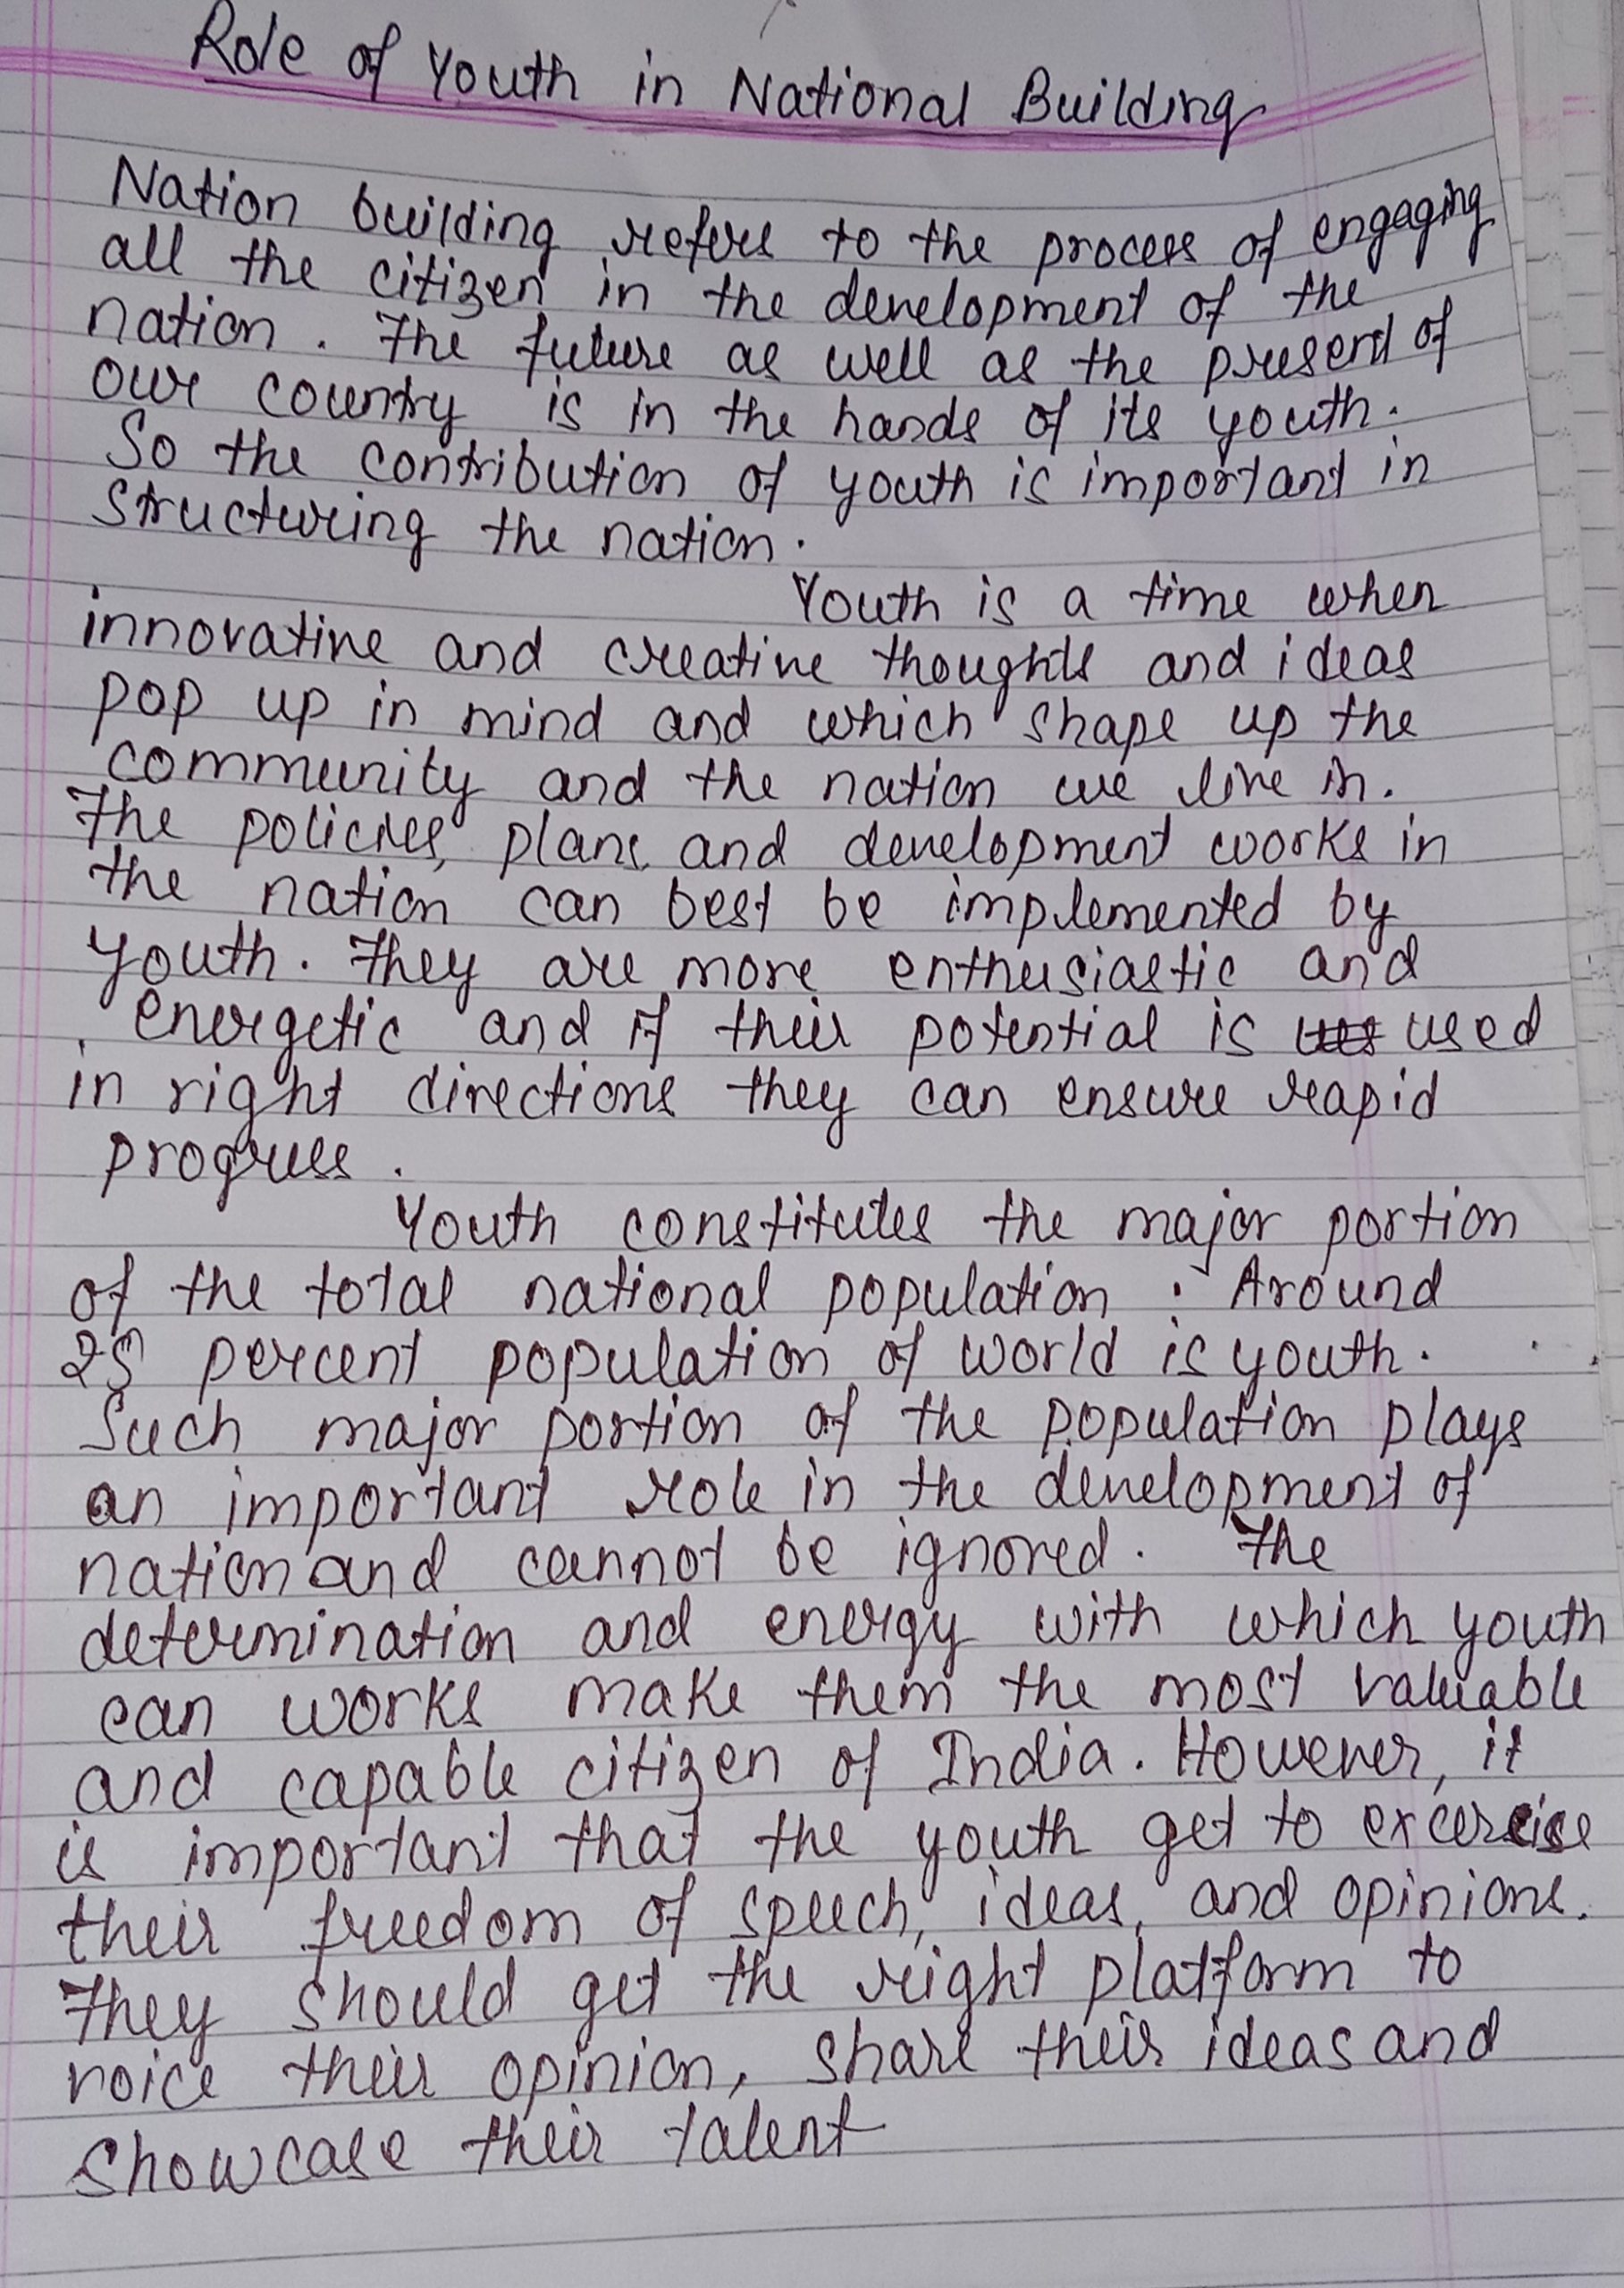 Role of Youth in National Building
Nation building refers to the process of engaging
all the citizen in the development of the
nation. The future as well as the present of
our country is in the hands of its youth.
So the contribution of youth is important in
structuring the nation.
Youth is a time when
innovative and creative thoughts and ideas
pop up in mind and which shape up the
community and the nation we live in.
The policies, plans and development works in
the nation can best be implemented by
youth. They are more enthusiastic and
energetic and if their potential is used
in right directions they can ensure rapid
progress.
Youth constitutes the major portion
of the total national population : Around
25 percent population of world is youth.
Such major portion of the population plays
an important role in the development of
nation and cannot be ignored. The
determination and energy with which youth
can works make them the most valuable
and capable citizen of India. However, it
is important that the youth get to excercise
their freedom of speech, ideas, and opinions.
They should get the right platform to
voice their opinion, share their ideas and
showcase their talent